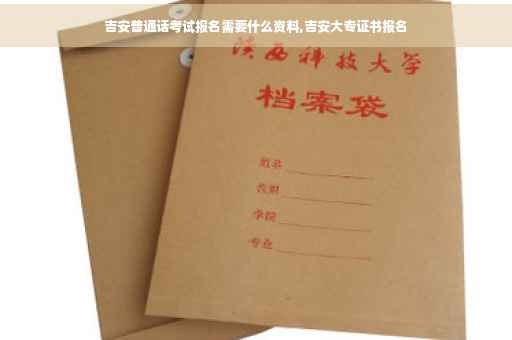 吉安普通话考试报名需要什么资料,吉安大专证书报名
陕西科技大学
档案袋
姓名
学院
专业